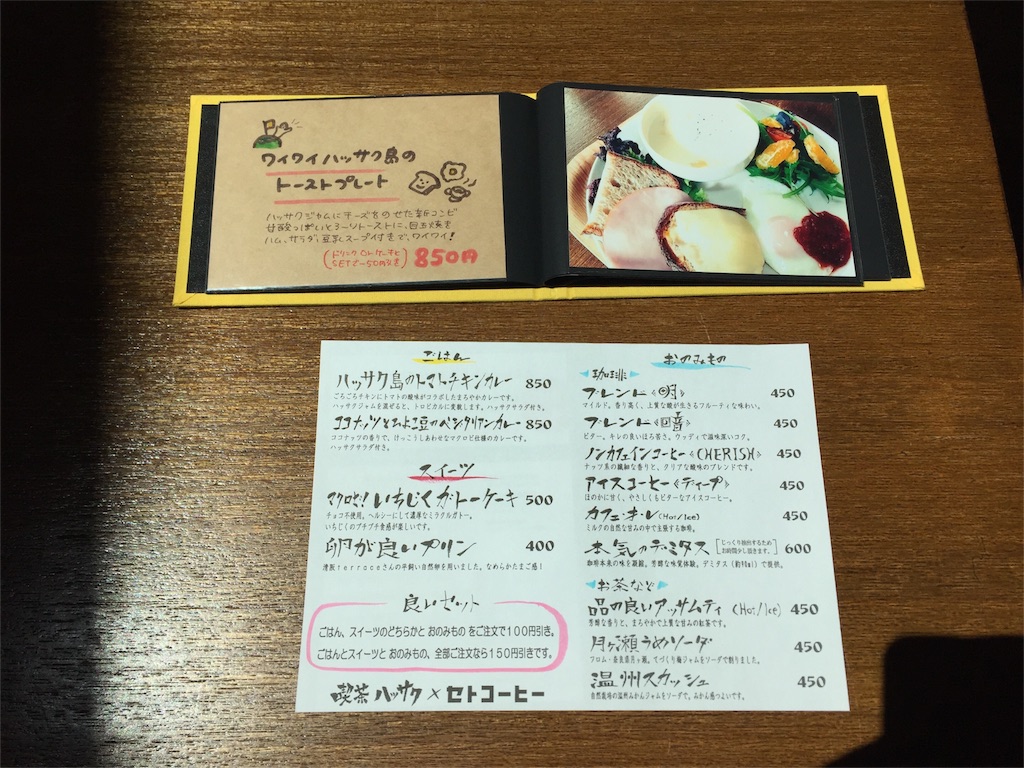 ワイワイハッサク島の
トーストプレート
ハッサクジャムにチーズをのせた新コンビ
甘酸っぱいとろ〜りトーストに、目玉焼き
ハム、サラダ、豆乳スープ付きで、ワイワイ!
(ドリンク or ケーキと
SETで-50円引き) 850円
ごはん
ハッサク島のトマトチキンカレー 850
ごろごろチキンにトマトの酸味がコラボしたまろやかカレーです。
ハッサクジャムを混ぜると、トロピカルに変観します。ハッサクサラダ付き。
ココナッツとひよこ豆のベジタリアンカレー 850
ココナッツの香りで、けっこうしあわせなマクロビ仕様のカレーです。
ハッサクサラダ付き。
スイーツ
マクロビ!いちじくガトーケーキ 500
チョコ不使用。ヘルシーにして濃厚なミラクルガトー。
いちじくのプチプチ食感が楽しいです。
卵が良いプリン 400
terraceさんの平飼い自然卵を用いました。なめらかたまご感!
良いセット
ごはん、スイーツのどちらかと おのみもの をご注文で100円引き。
ごはんとスイーツと おのみもの、全部ご注文なら150円引きです。
喫茶ハッサク×セトコーヒー
おのみもの
珈琲
ブレンド《明》 450
マイルド。香り高く、上質な酸が生きるフルーティな味わい。
ブレンド《暗》 450
ビター。キレの良いほろ苦さ。ウッディで滋味深いコク。
ノンカフェインコーヒー《CHERISH》 450
ナッツ系の繊細な香りと、クリアな酸味のブレンドです。
アイスコーヒー《ディープ》 450
ほのかに甘く、やさしくもビターなアイスコーヒー。
カフェ・オ・レ(Hot/Ice) 450
ミルクの自然な甘みの中で主張する珈琲。
本気のデミタス [じっくり抽出するため お時間少し頂きます。] 600
珈琲本来の味を凝縮。芳醇な味覚体験。デミタス(約90ml)で提供。
お茶など
品の良いアッサムティ (Hot/Ice) 450
芳醇な香りと、まろやかで上質な甘みの紅茶です。
月ヶ瀬うめソーダ 450
フロム・奈良県月ヶ瀬。てづくり梅ジャムをソーダで割りました。
温州スカッシュ 450
自然栽培の温州みかんジャムをソーダで。みかん感つよいです。